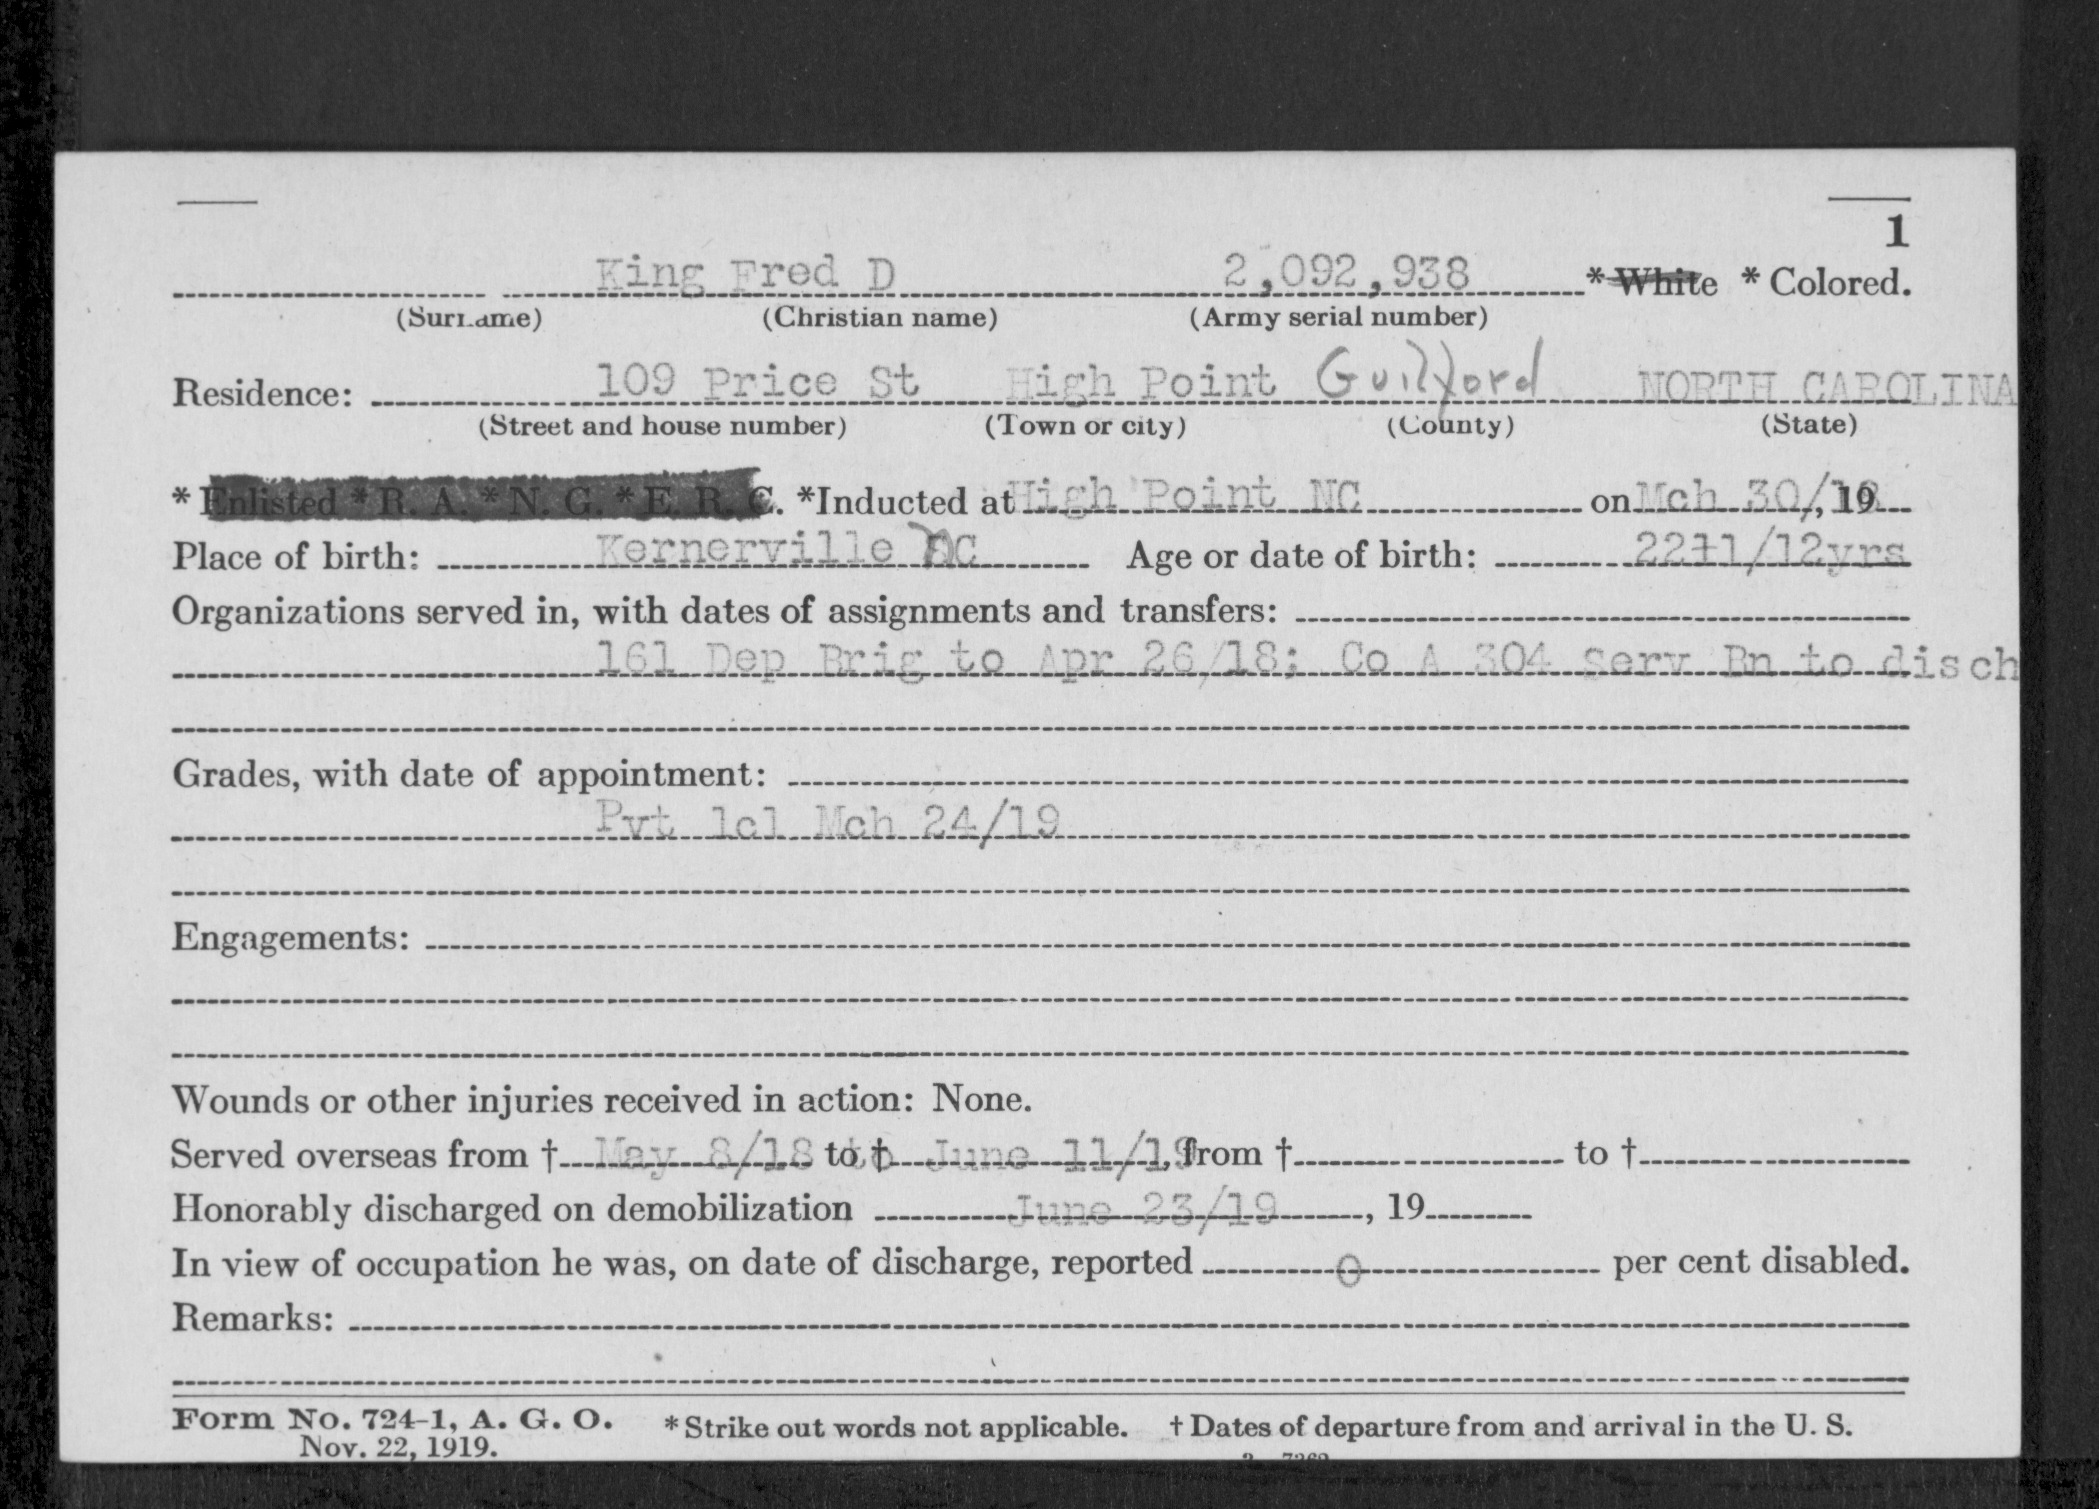 1
King Fred D 2,092,938 * White * Colored.
(Surname) (Christian name) (Army serial number)
Residence: 109 Price St High Point Guilford NORTH CAROLINA
(Street and house number) (Town or city) (County) (State)
* Enlisted * R. A. * N. G. * E. R. C. *Inducted at High Point NC on Mch 30/18, 19
Place of birth: Kernerville NC Age or date of birth: 22 11/12yrs
Organizations served in, with dates of assignments and transfers:
161 Dep Brig to Apr 26/18; Co A 304 Serv Bn to disch
Grades, with date of appointment:
Pvt 1cl Mch 24/19
Engagements:
Wounds or other injuries received in action: None.
Served overseas from † May 8/18 to † to June 11/19, from † to †
Honorably discharged on demobilization June 23/19, 19
In view of occupation he was, on date of discharge, reported 0 per cent disabled.
Remarks:
Form No. 724-1, A. G. O. * Strike out words not applicable. † Dates of departure from and arrival in the U. S.
Nov. 22, 1919.